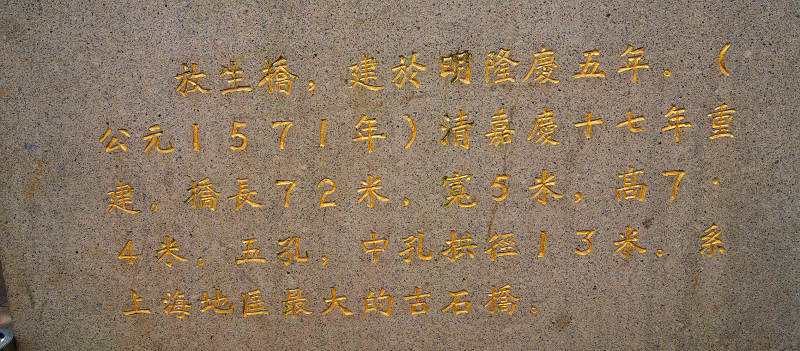 放生橋，建於明隆慶五年。（
公元1571年）清嘉慶十七年重
建。橋長72米，寬5米，高7·
4米。五孔，中孔拱徑13米。系
上海地區最大的古石橋。